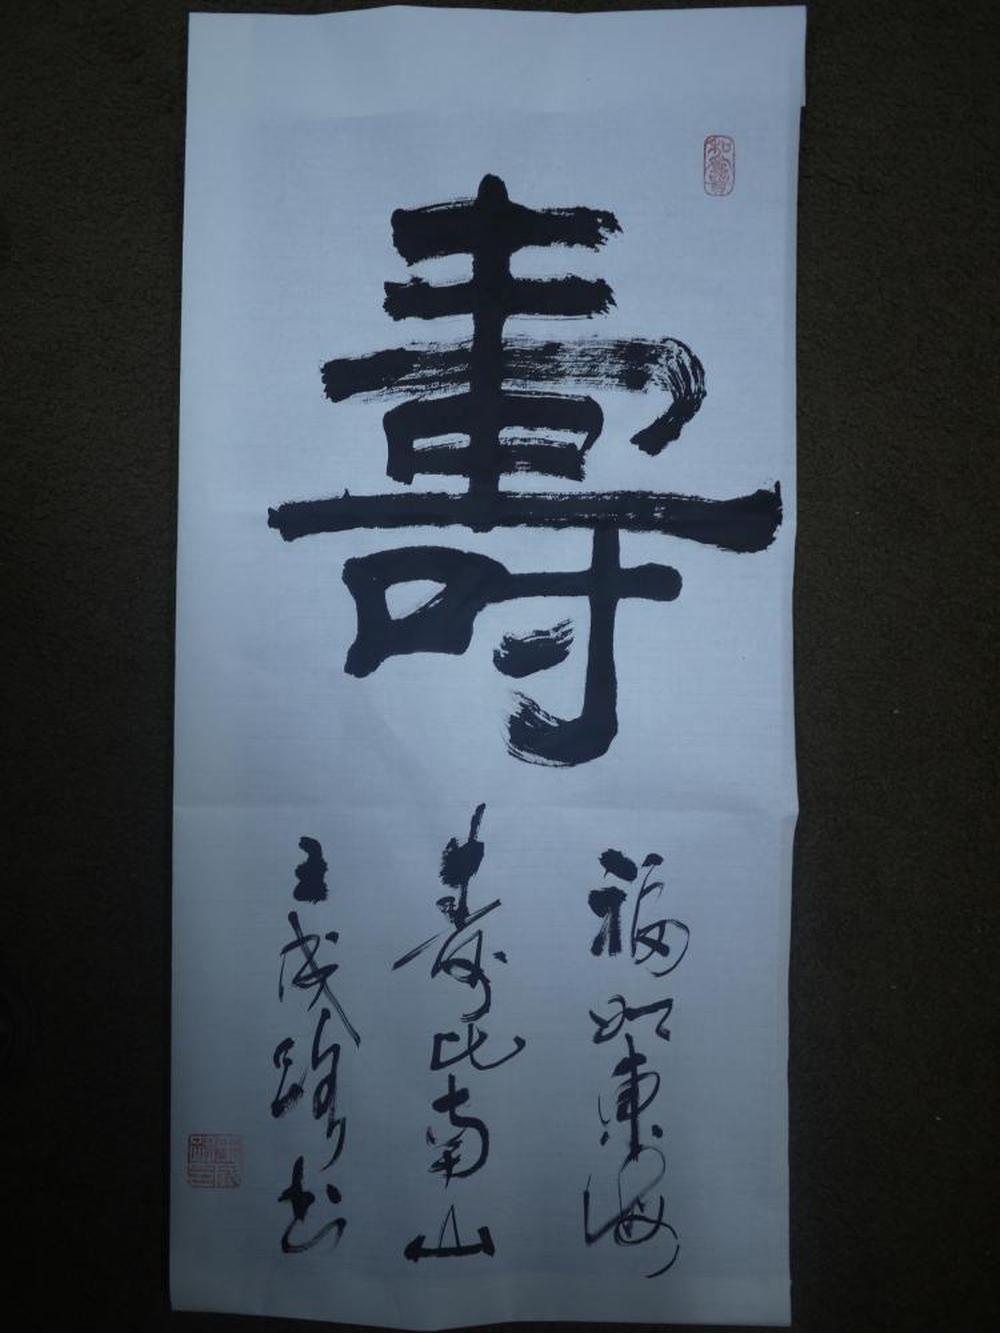 壽
福如東海
壽比南山
王成
书